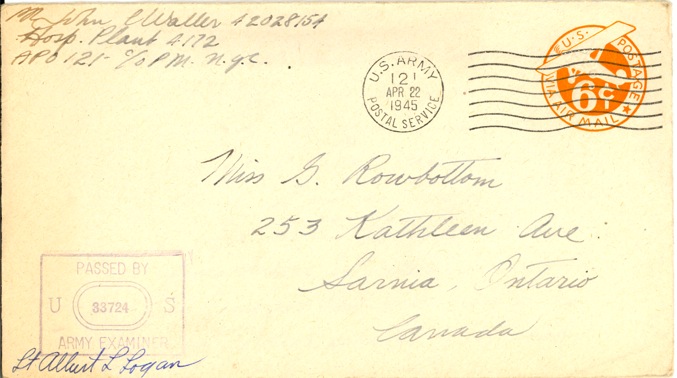 John C Waller 42028154
Hosp. Plant 4172
APO 121 - c/o P.M. N.Y.C.
U.S. ARMY
121
APR 22
1945
POSTAL SERVICE
U.S. POSTAGE
VIA AIR MAIL
6¢
Miss G. Rowbottom
253 Kathleen Ave.
Sarnia, Ontario
Canada
PASSED BY
U 33724 S
ARMY EXAMINER
Lt Albert L Logan